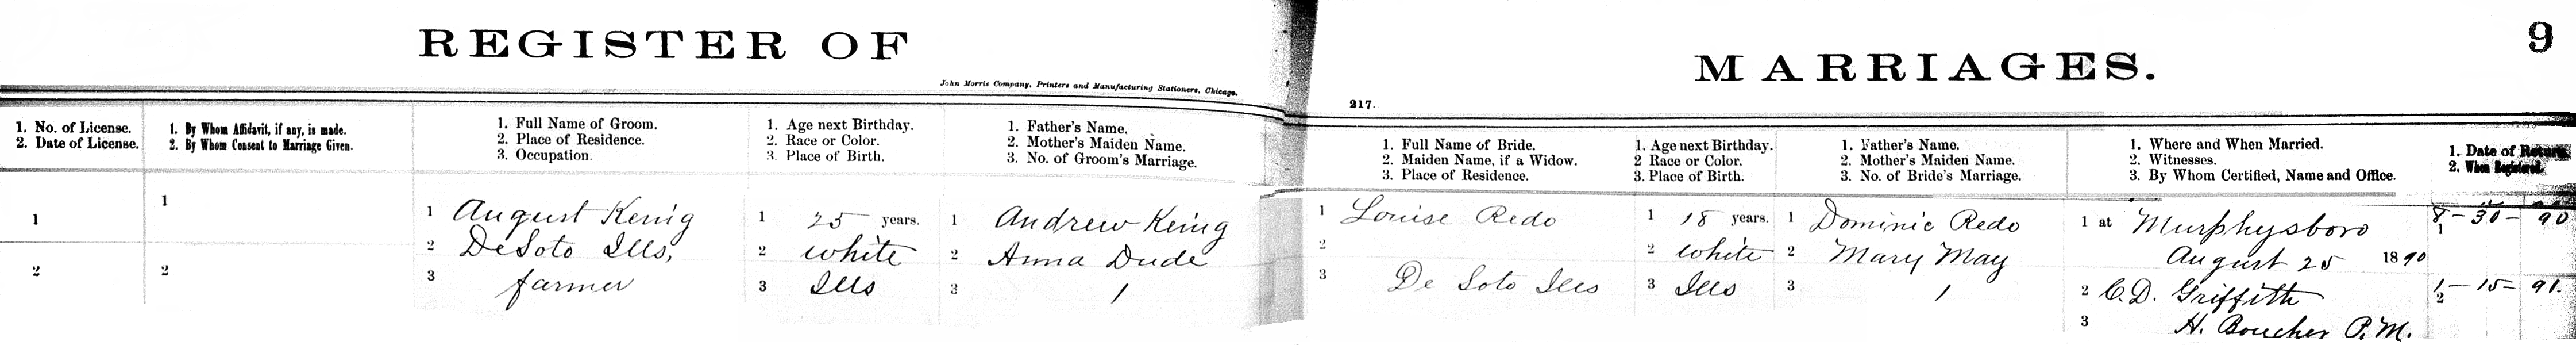 REGISTER OF
MARRIAGES.
9
John Morris Company, Printers and Manufacturing Stationers, Chicago.
217.
1. No. of License.
2. Date of License.
1. By Whom Affidavit, if any, is made.
2. By Whom Consent to Marriage Given.
1. Full Name of Groom.
2. Place of Residence.
3. Occupation.
1. Age next Birthday.
2. Race or Color.
3. Place of Birth.
1. Father's Name.
2. Mother's Maiden Name.
3. No. of Groom's Marriage.
1. Full Name of Bride.
2. Maiden Name, if a Widow.
3. Place of Residence.
1. Age next Birthday.
2 Race or Color.
3. Place of Birth.
1. Father's Name.
2. Mother's Maiden Name.
3. No. of Bride's Marriage.
1. Where and When Married.
2. Witnesses.
3. By Whom Certified, Name and Office.
1. Date of Return.
2. When Registered.
1
2
1
2
1 August Kenig
2 DeSoto Ills,
3 farmer
1 25 years.
2 white
3 Ills
1 Andrew Kenig
2 Anna Dude
3 1
1 Louise Redo
2
3 De Soto Ills
1 18 years.
2 white
3 Ills
1 Dominic Redo
2 Mary May
3 1
1 at Murphysboro
August 25 1890
2 C.D. Griffith
3 H. Boucher P.M.
1 8-30-90
2 1-15-91.